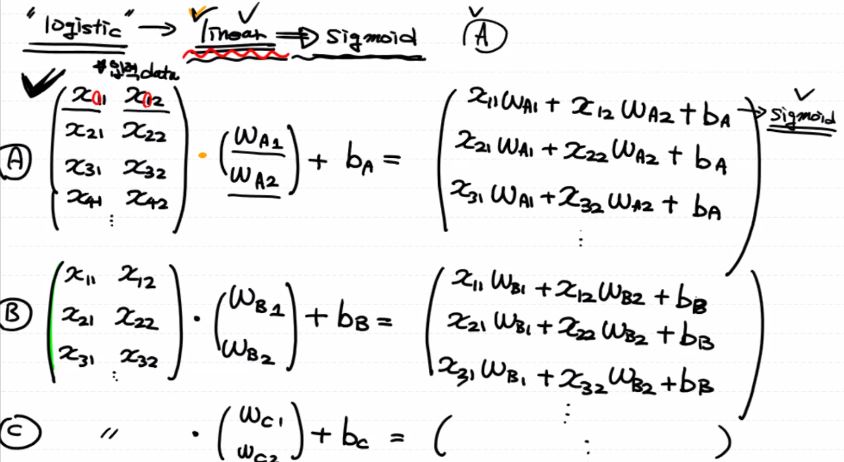 "logistic" → linear ⇒ sigmoid Ⓐ
* 입력 data
Ⓐ (x11 x12 / x21 x22 / x31 x32 / x41 x42 / ⋮) · (WA1 / WA2) + bA = (x11WA1 + x12WA2 + bA / x21WA1 + x22WA2 + bA / x31WA1 + x32WA2 + bA / ⋮) → sigmoid
Ⓑ (x11 x12 / x21 x22 / x31 x32 / ⋮) · (WB1 / WB2) + bB = (x11WB1 + x12WB2 + bB / x21WB1 + x22WB2 + bB / x31WB1 + x32WB2 + bB / ⋮)
Ⓒ 〃 · (WC1 / WC2) + bC = ( ⋮ )